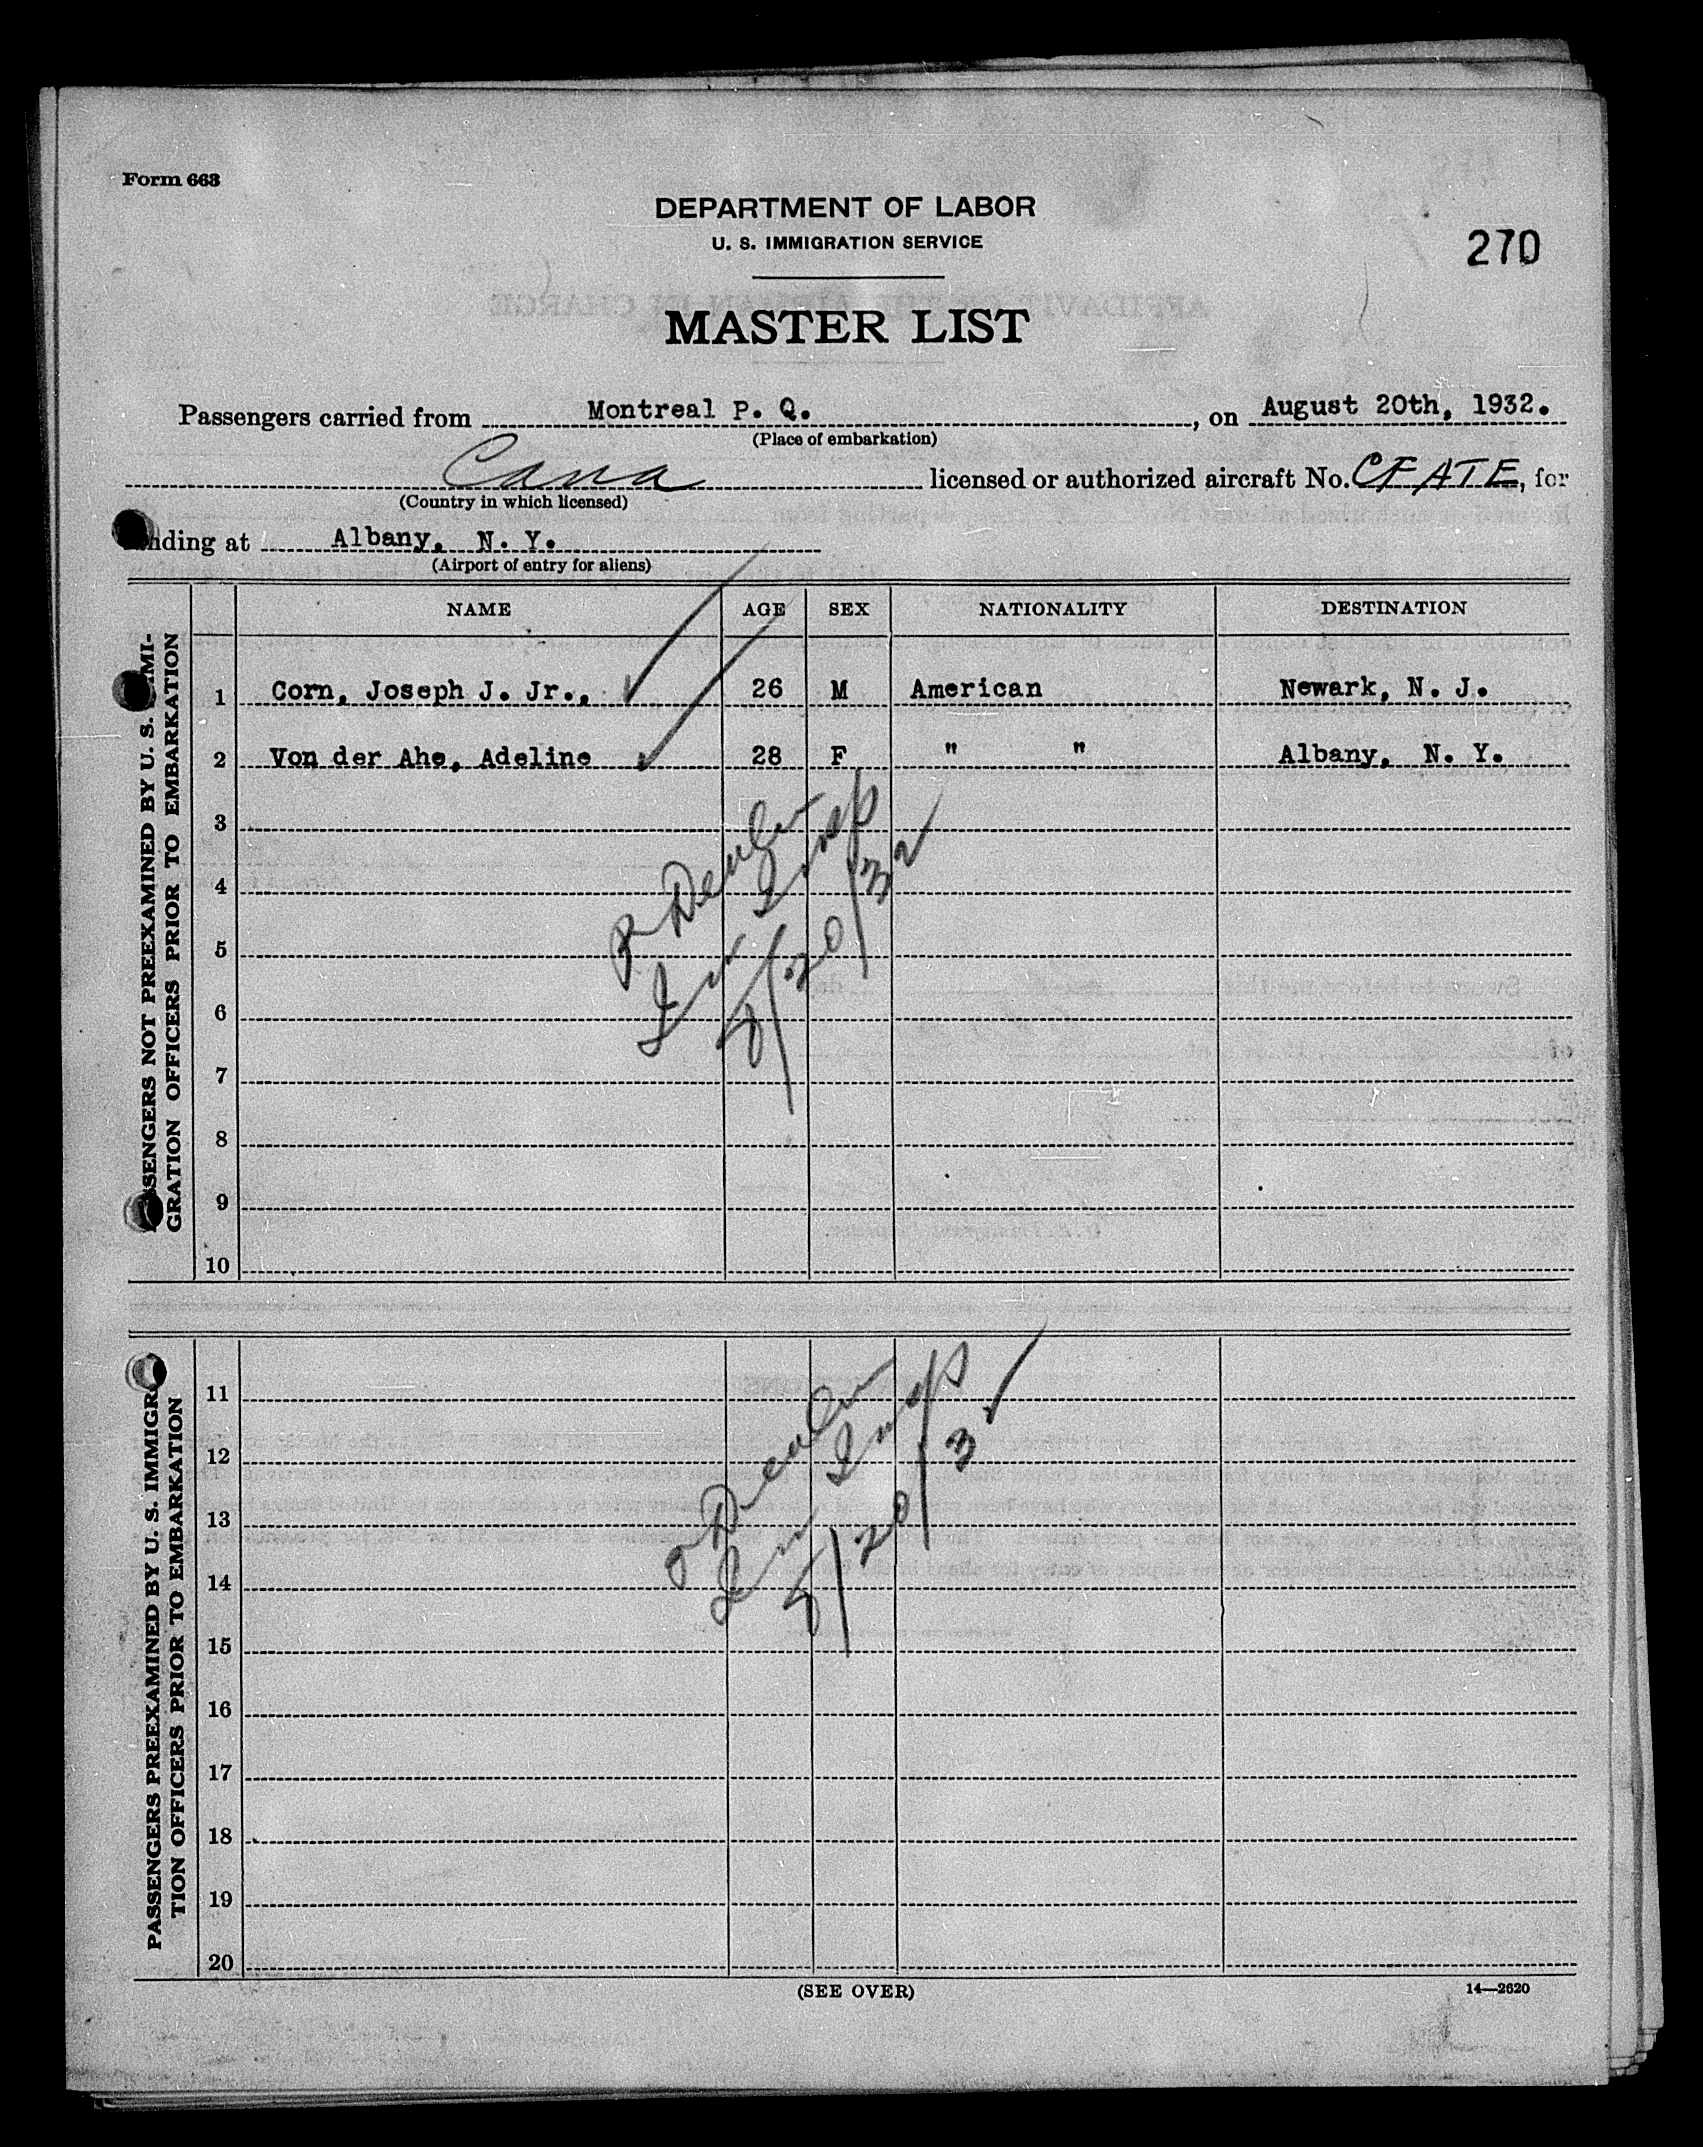 Form 663
DEPARTMENT OF LABOR
U. S. IMMIGRATION SERVICE
270
MASTER LIST
Passengers carried from Montreal P. Q. , on August 20th, 1932.
(Place of embarkation)
Cana licensed or authorized aircraft No. CFATE, for
(Country in which licensed)
nding at Albany, N. Y.
(Airport of entry for aliens)
NAME AGE SEX NATIONALITY DESTINATION
PASSENGERS NOT PREEXAMINED BY U. S. IMMI-
GRATION OFFICERS PRIOR TO EMBARKATION
1 Corn, Joseph J. Jr., 26 M American Newark, N. J.
2 Von der Ahe, Adeline 28 F " " Albany, N. Y.
3
4
5
6
7
8
9
10
Imm Insp
8/20/32
PASSENGERS PREEXAMINED BY U. S. IMMIGRA-
TION OFFICERS PRIOR TO EMBARKATION
11
12
13
14
15
16
17
18
19
20
Imm Insp
8/20/32
(SEE OVER)
14—2620